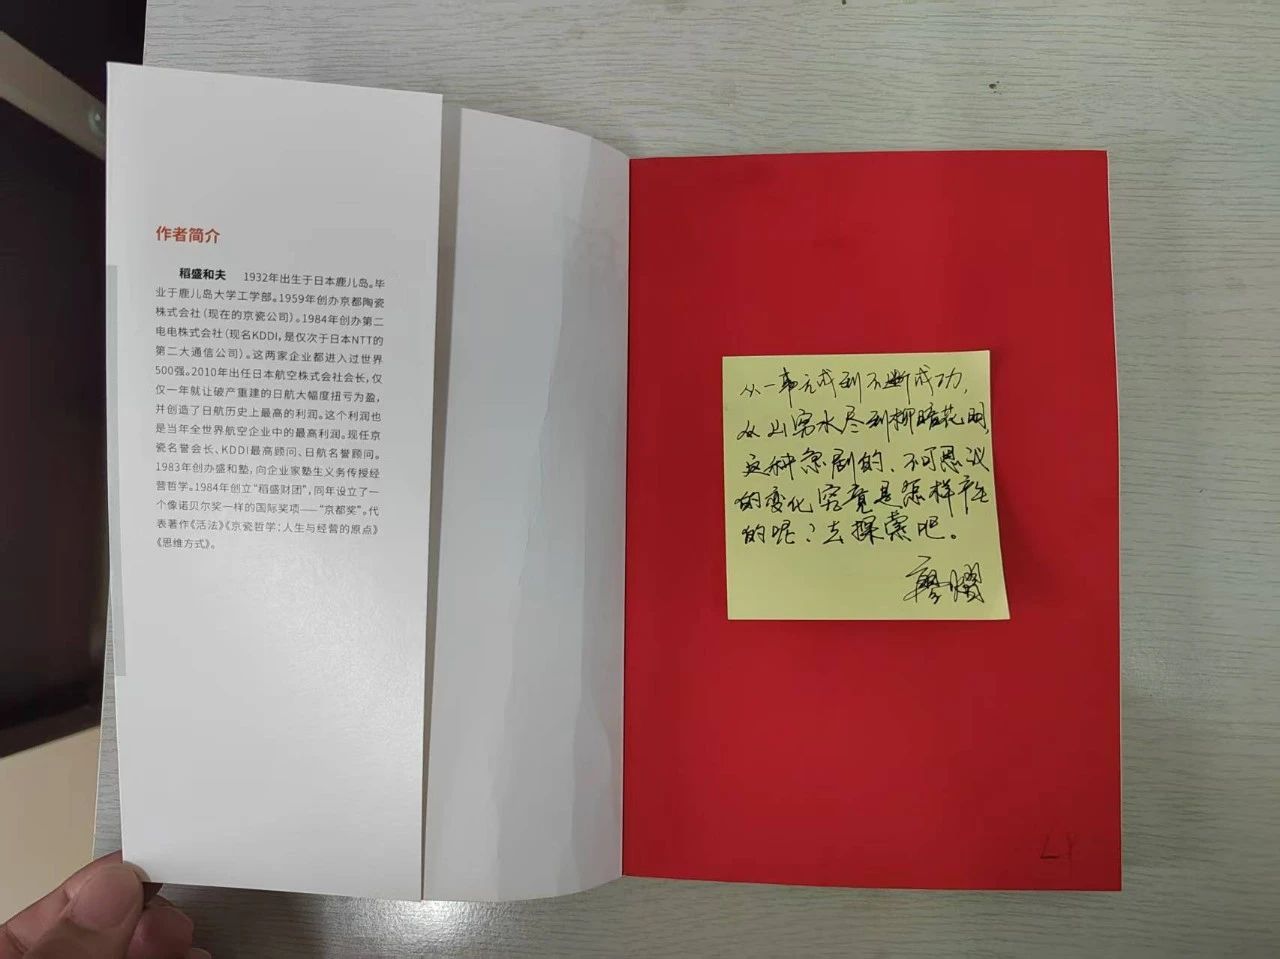 作者简介
稻盛和夫 1932年出生于日本鹿儿岛。毕
业于鹿儿岛大学工学部。1959年创办京都陶瓷
株式会社（现在的京瓷公司）。1984年创办第二
电电株式会社（现名KDDI，是仅次于日本NTT的
第二大通信公司）。这两家企业都进入过世界
500强。2010年出任日本航空株式会社会长，仅
仅一年就让破产重建的日航大幅度扭亏为盈，
并创造了日航历史上最高的利润。这个利润也
是当年全世界航空企业中的最高利润。现任京
瓷名誉会长、KDDI最高顾问、日航名誉顾问。
1983年创办盛和塾，向企业家塾生义务传授经
营哲学。1984年创立“稻盛财团”，同年设立了一
个像诺贝尔奖一样的国际奖项——“京都奖”。代
表著作《活法》《京瓷哲学：人生与经营的原点》
《思维方式》。
从一事无成到不断成功，
从山穷水尽到柳暗花明，
这种急剧的、不可思议
的变化究竟是怎样产生
的呢？去探索吧。
廖耀
LY